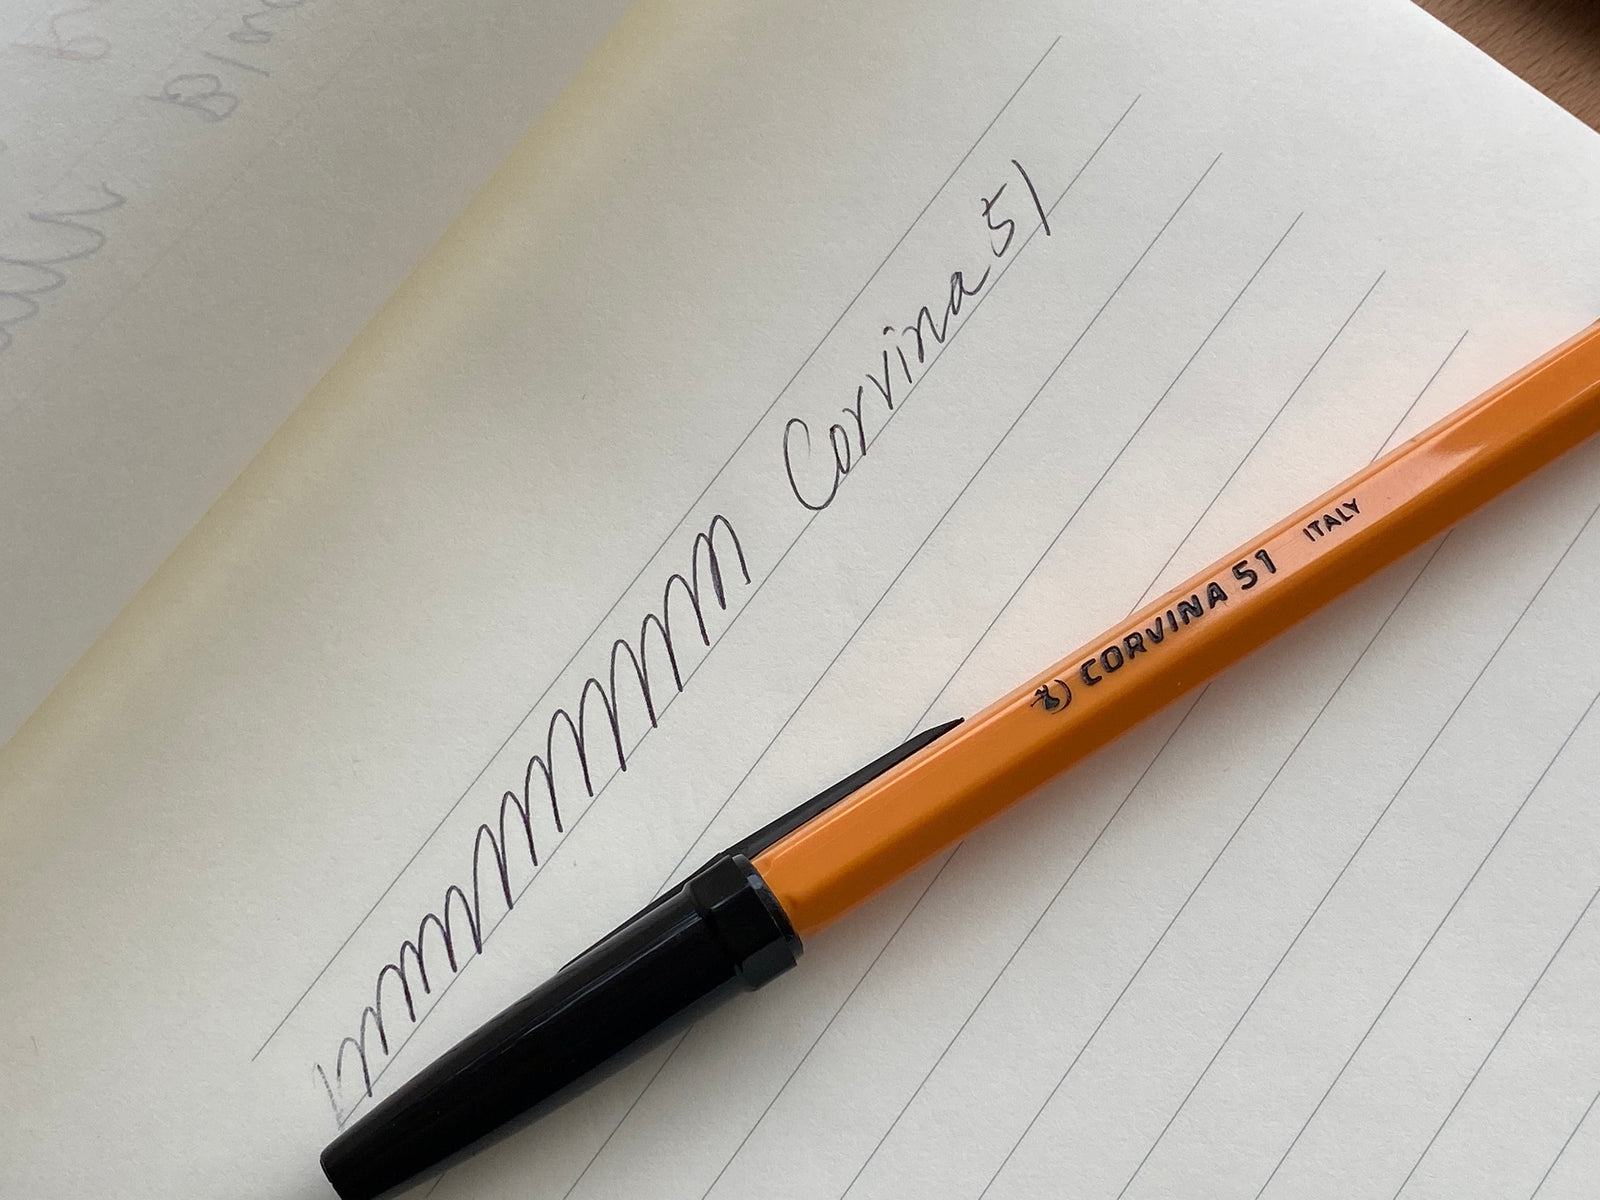 Corvina 51
CORVINA 51 ITALY